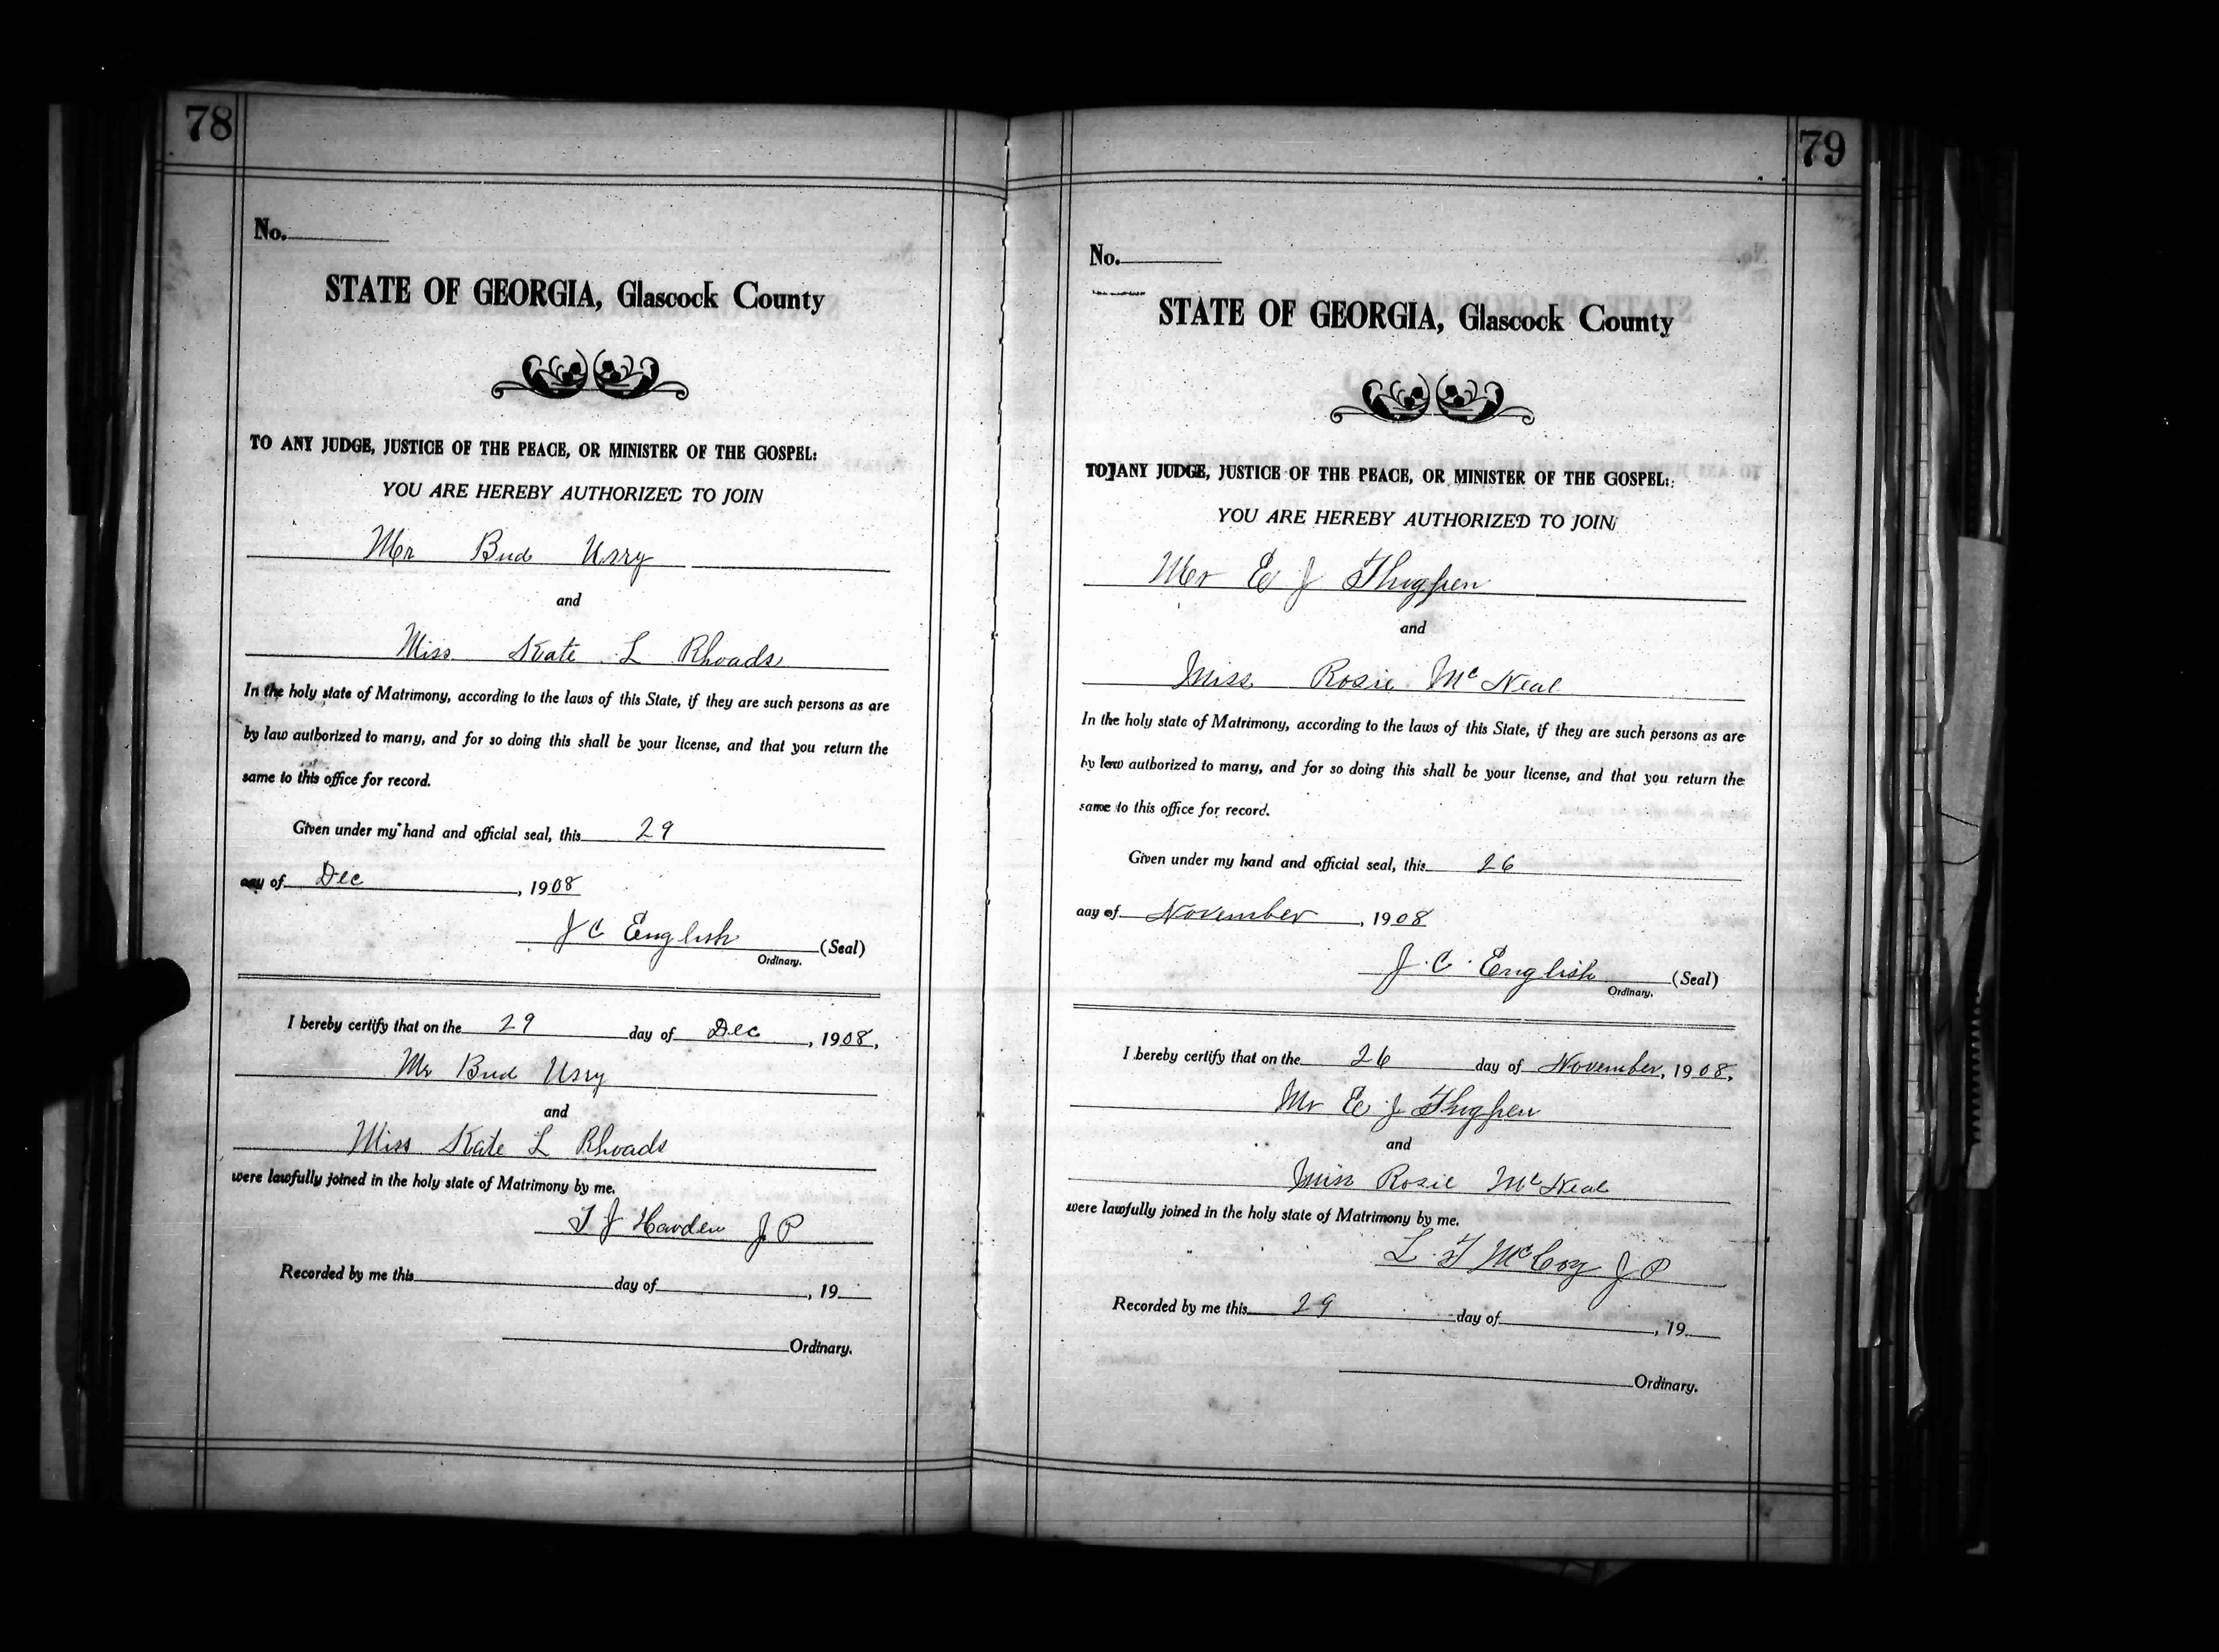 78
No.
STATE OF GEORGIA, Glascock County
TO ANY JUDGE, JUSTICE OF THE PEACE, OR MINISTER OF THE GOSPEL:
YOU ARE HEREBY AUTHORIZED TO JOIN
Mr Bud Usry
and
Miss Kate L Rhoads
In the holy state of Matrimony, according to the laws of this State, if they are such persons as are
by law authorized to marry, and for so doing this shall be your license, and that you return the
same to this office for record.
Given under my hand and official seal, this 29
day of Dec, 1908
J C English (Seal)
Ordinary.
I hereby certify that on the 29 day of Dec, 1908,
Mr Bud Usry
and
Miss Kate L Rhoads
were lawfully joined in the holy state of Matrimony by me.
T J Harden J. P
Recorded by me this day of , 19
Ordinary.
79
No.
STATE OF GEORGIA, Glascock County
TO ANY JUDGE, JUSTICE OF THE PEACE, OR MINISTER OF THE GOSPEL:
YOU ARE HEREBY AUTHORIZED TO JOIN
Mr E J Thigpen
and
Miss Rosie McNeal
In the holy state of Matrimony, according to the laws of this State, if they are such persons as are
by law authorized to marry, and for so doing this shall be your license, and that you return the
same to this office for record.
Given under my hand and official seal, this 26
day of November, 1908
J. C. English (Seal)
Ordinary.
I hereby certify that on the 26 day of November, 1908,
Mr E J Thigpen
and
Miss Rosie McNeal
were lawfully joined in the holy state of Matrimony by me.
L. T McCoy J P
Recorded by me this 29 day of , 19
Ordinary.